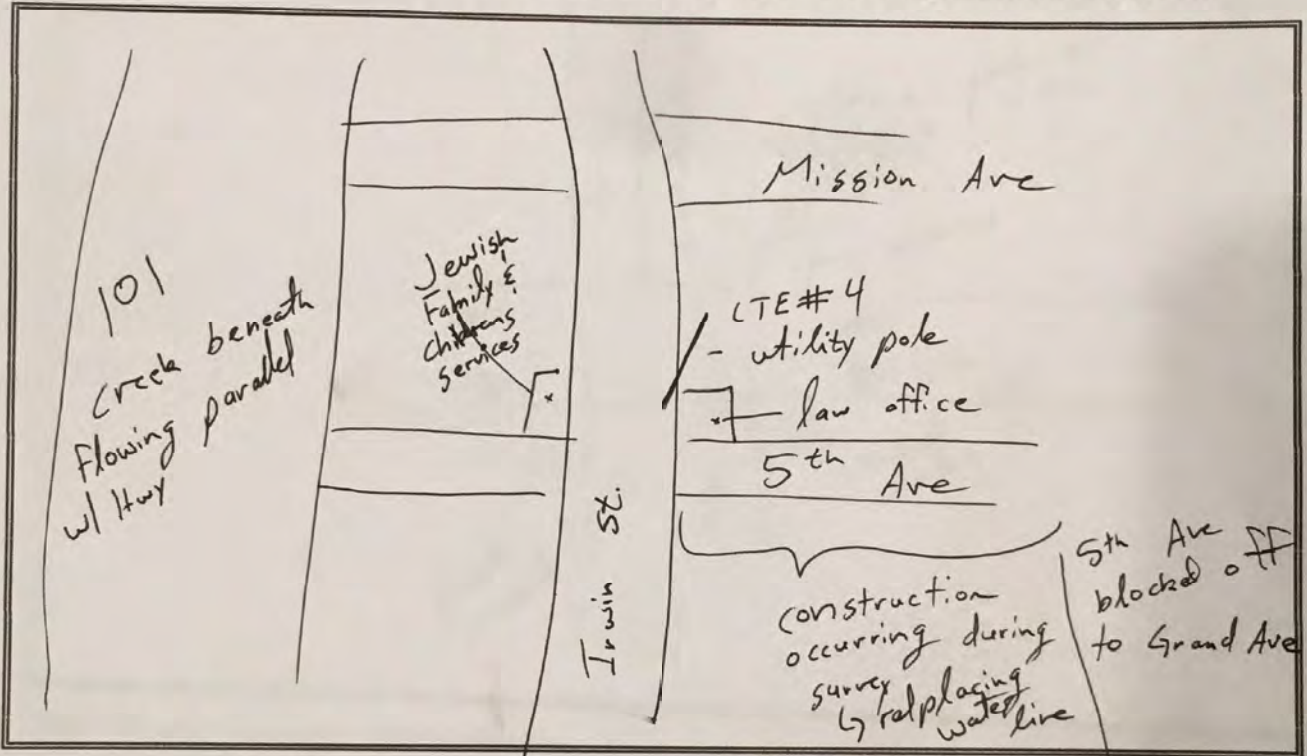 101
Creek beneath
flowing parallel
w/ Hwy
Jewish
Family &
childrens
services
Mission Ave
LTE#4
- utility pole
law office
5th Ave
Irwin St.
construction
occurring during
survey
↳ ralplacing
water line
5th Ave
blocked off
to Grand Ave